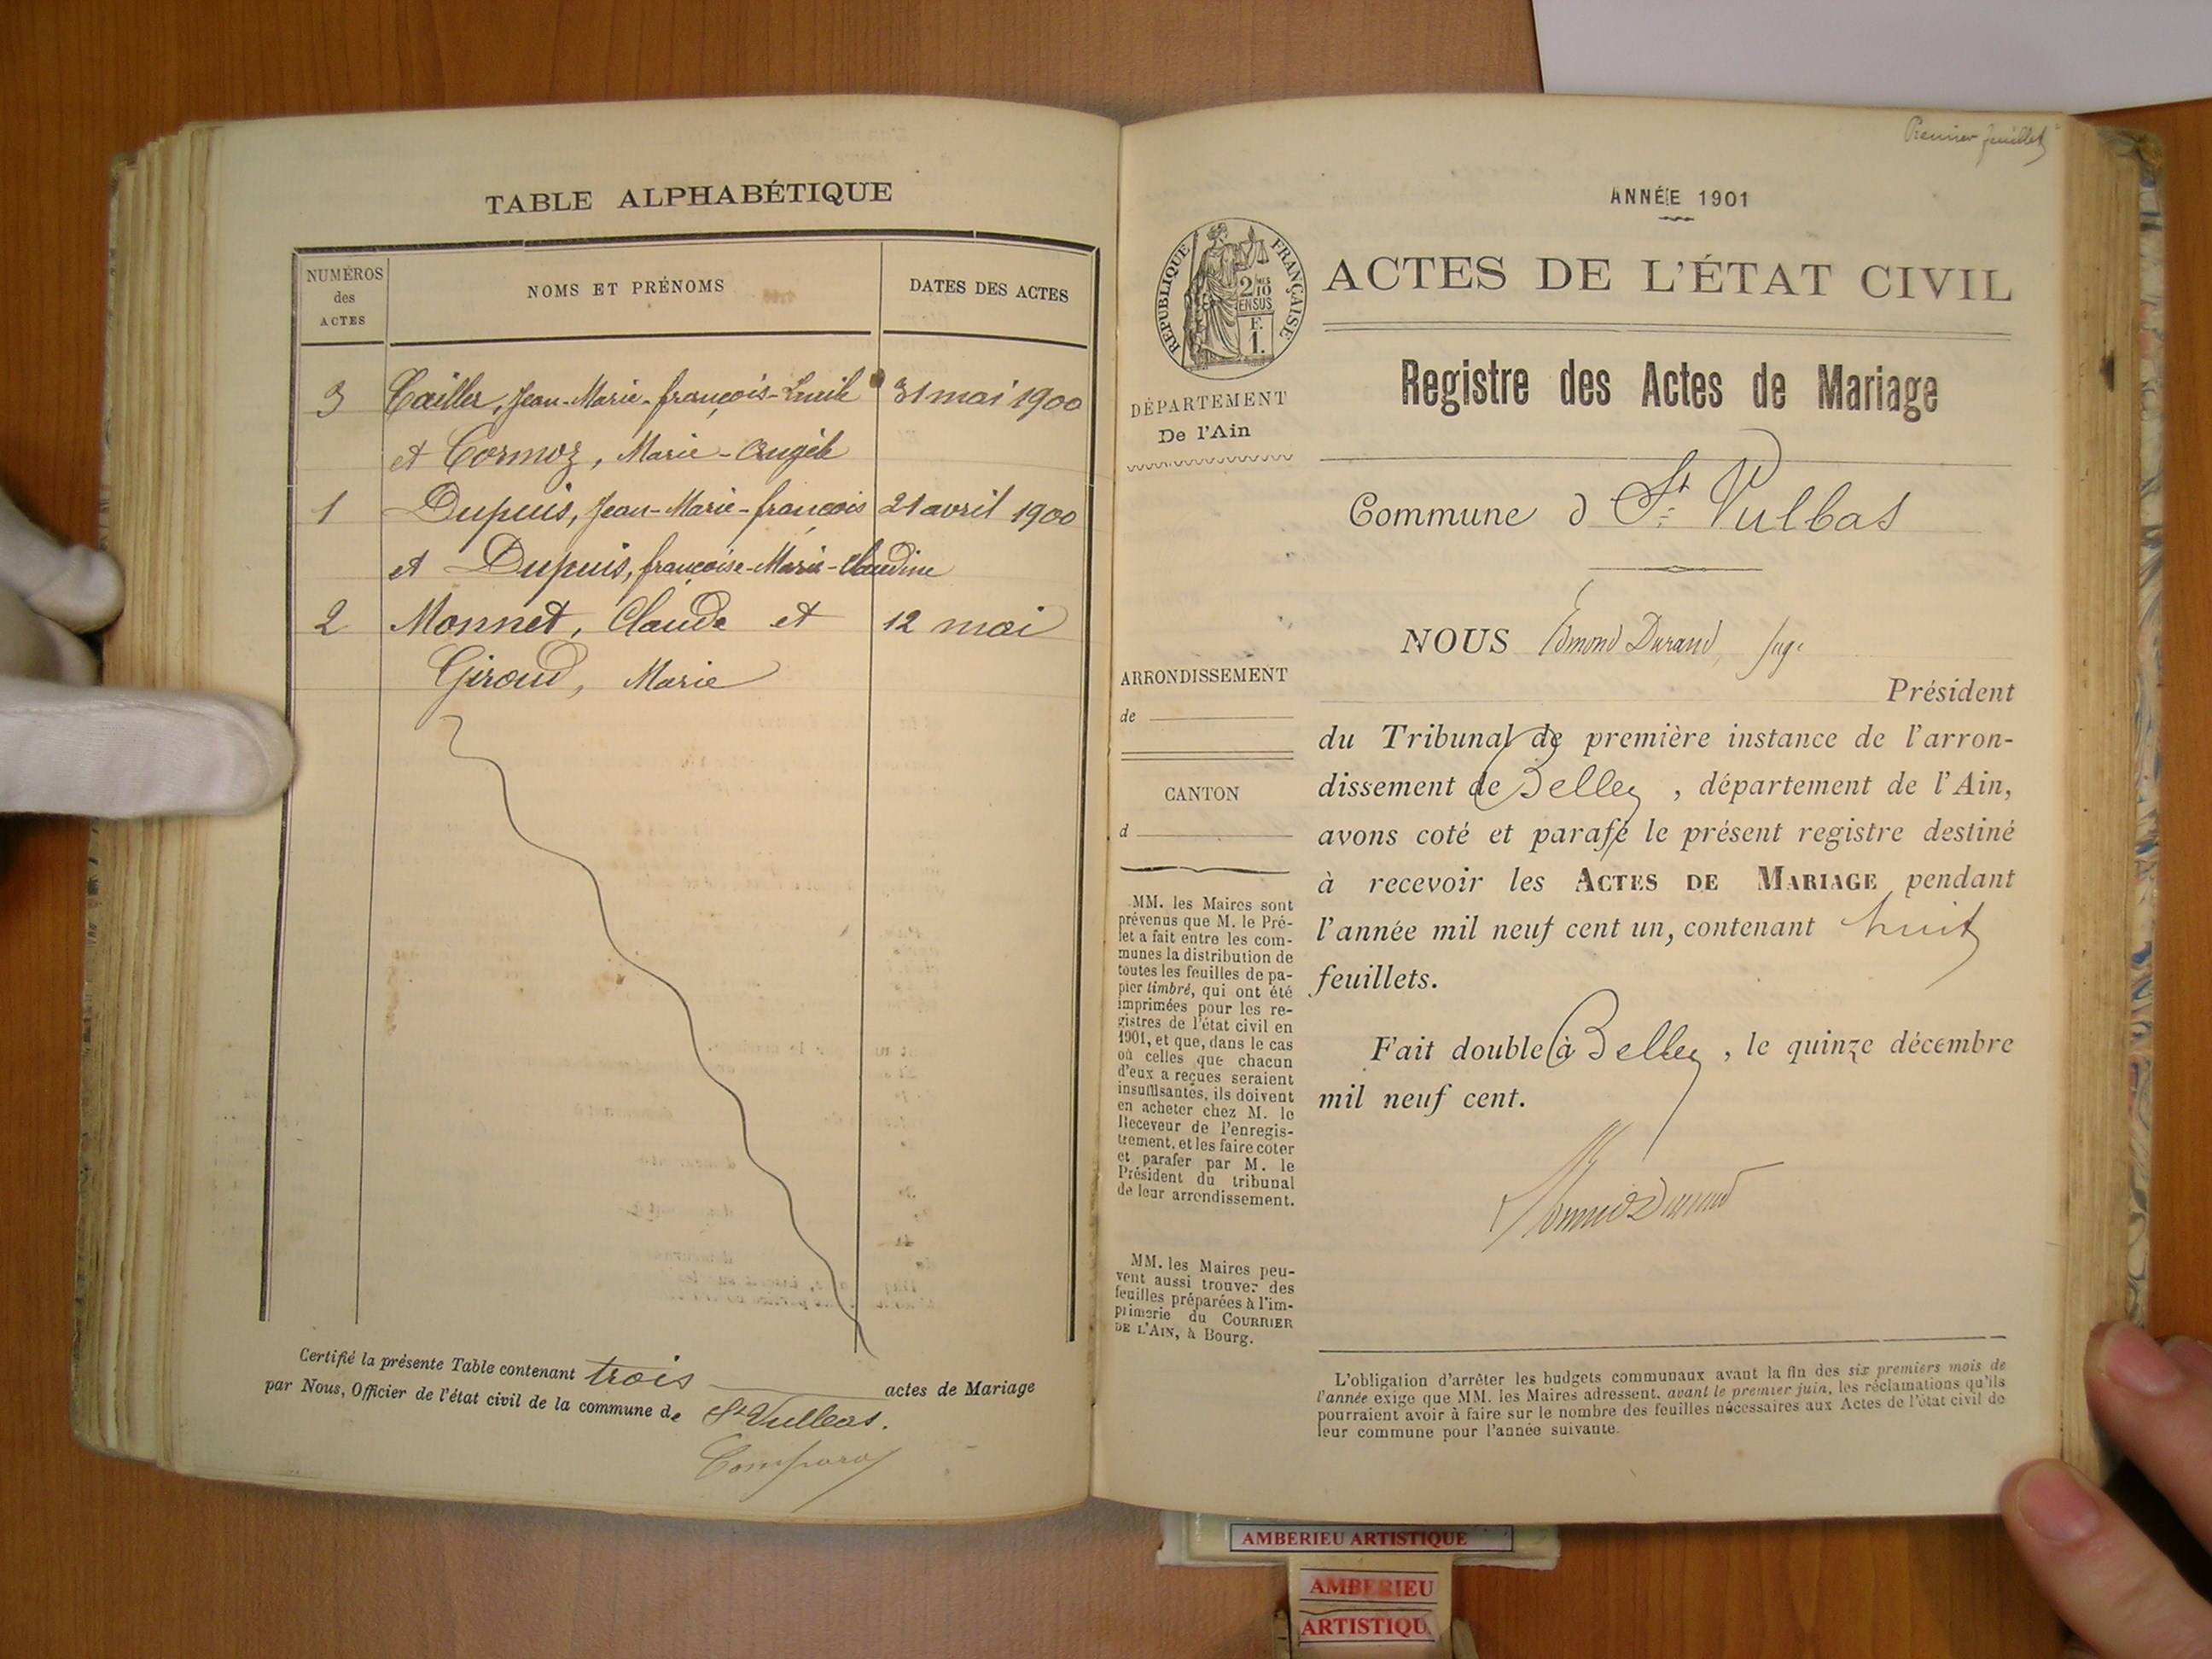 TABLE ALPHABÉTIQUE
NUMÉROS
des
ACTES
NOMS ET PRÉNOMS
DATES DES ACTES
3 Cailler, Jean-Marie-françois- 31 mai 1900
et Cormoz, Marie-Angèle
1 Dupuis, Jean-Marie-françois 21 avril 1900
et Dupuis, françoise-Marie-Claudine
2 Monnet, Claude et 12 mai
Giroud, Marie
Certifié la présente Table contenant trois actes de Mariage
par Nous, Officier de l'état civil de la commune de St Vulbas.
Premier feuillet
ANNÉE 1901
RÉPUBLIQUE FRANÇAISE
2/10
EN SUS
F.
1.
ACTES DE L'ÉTAT CIVIL
Registre des Actes de Mariage
DÉPARTEMENT
De l'Ain
Commune d St Vulbas
NOUS Edmond Durand, Juge
Président
du Tribunal de première instance de l'arron-
dissement de Belley, département de l'Ain,
avons coté et parafé le présent registre destiné
à recevoir les ACTES DE MARIAGE pendant
l'année mil neuf cent un, contenant huit
feuillets.
Fait double à Belley, le quinze décembre
mil neuf cent.
Edmond Durand
ARRONDISSEMENT
de
CANTON
d
MM. les Maires sont
prévenus que M. le Pré-
fet a fait entre les com-
munes la distribution de
toutes les feuilles de pa-
pier timbré, qui ont été
imprimées pour les re-
gistres de l'état civil en
1901, et que, dans le cas
où celles que chacun
d'eux a reçues seraient
insuffisantes, ils doivent
en acheter chez M. le
Receveur de l'enregis-
trement, et les faire coter
et parafer par M. le
Président du tribunal
de leur arrondissement.
MM. les Maires peu-
vent aussi trouver des
feuilles préparées à l'im-
primerie du COURRIER
DE L'AIN, à Bourg.
L'obligation d'arrêter les budgets communaux avant la fin des six premiers mois de
l'année exige que MM. les Maires adressent, avant le premier juin, les réclamations qu'ils
pourraient avoir à faire sur le nombre des feuilles nécessaires aux Actes de l'état civil de
leur commune pour l'année suivante.
AMBERIEU ARTISTIQUE
AMBERIEU
ARTISTIQU